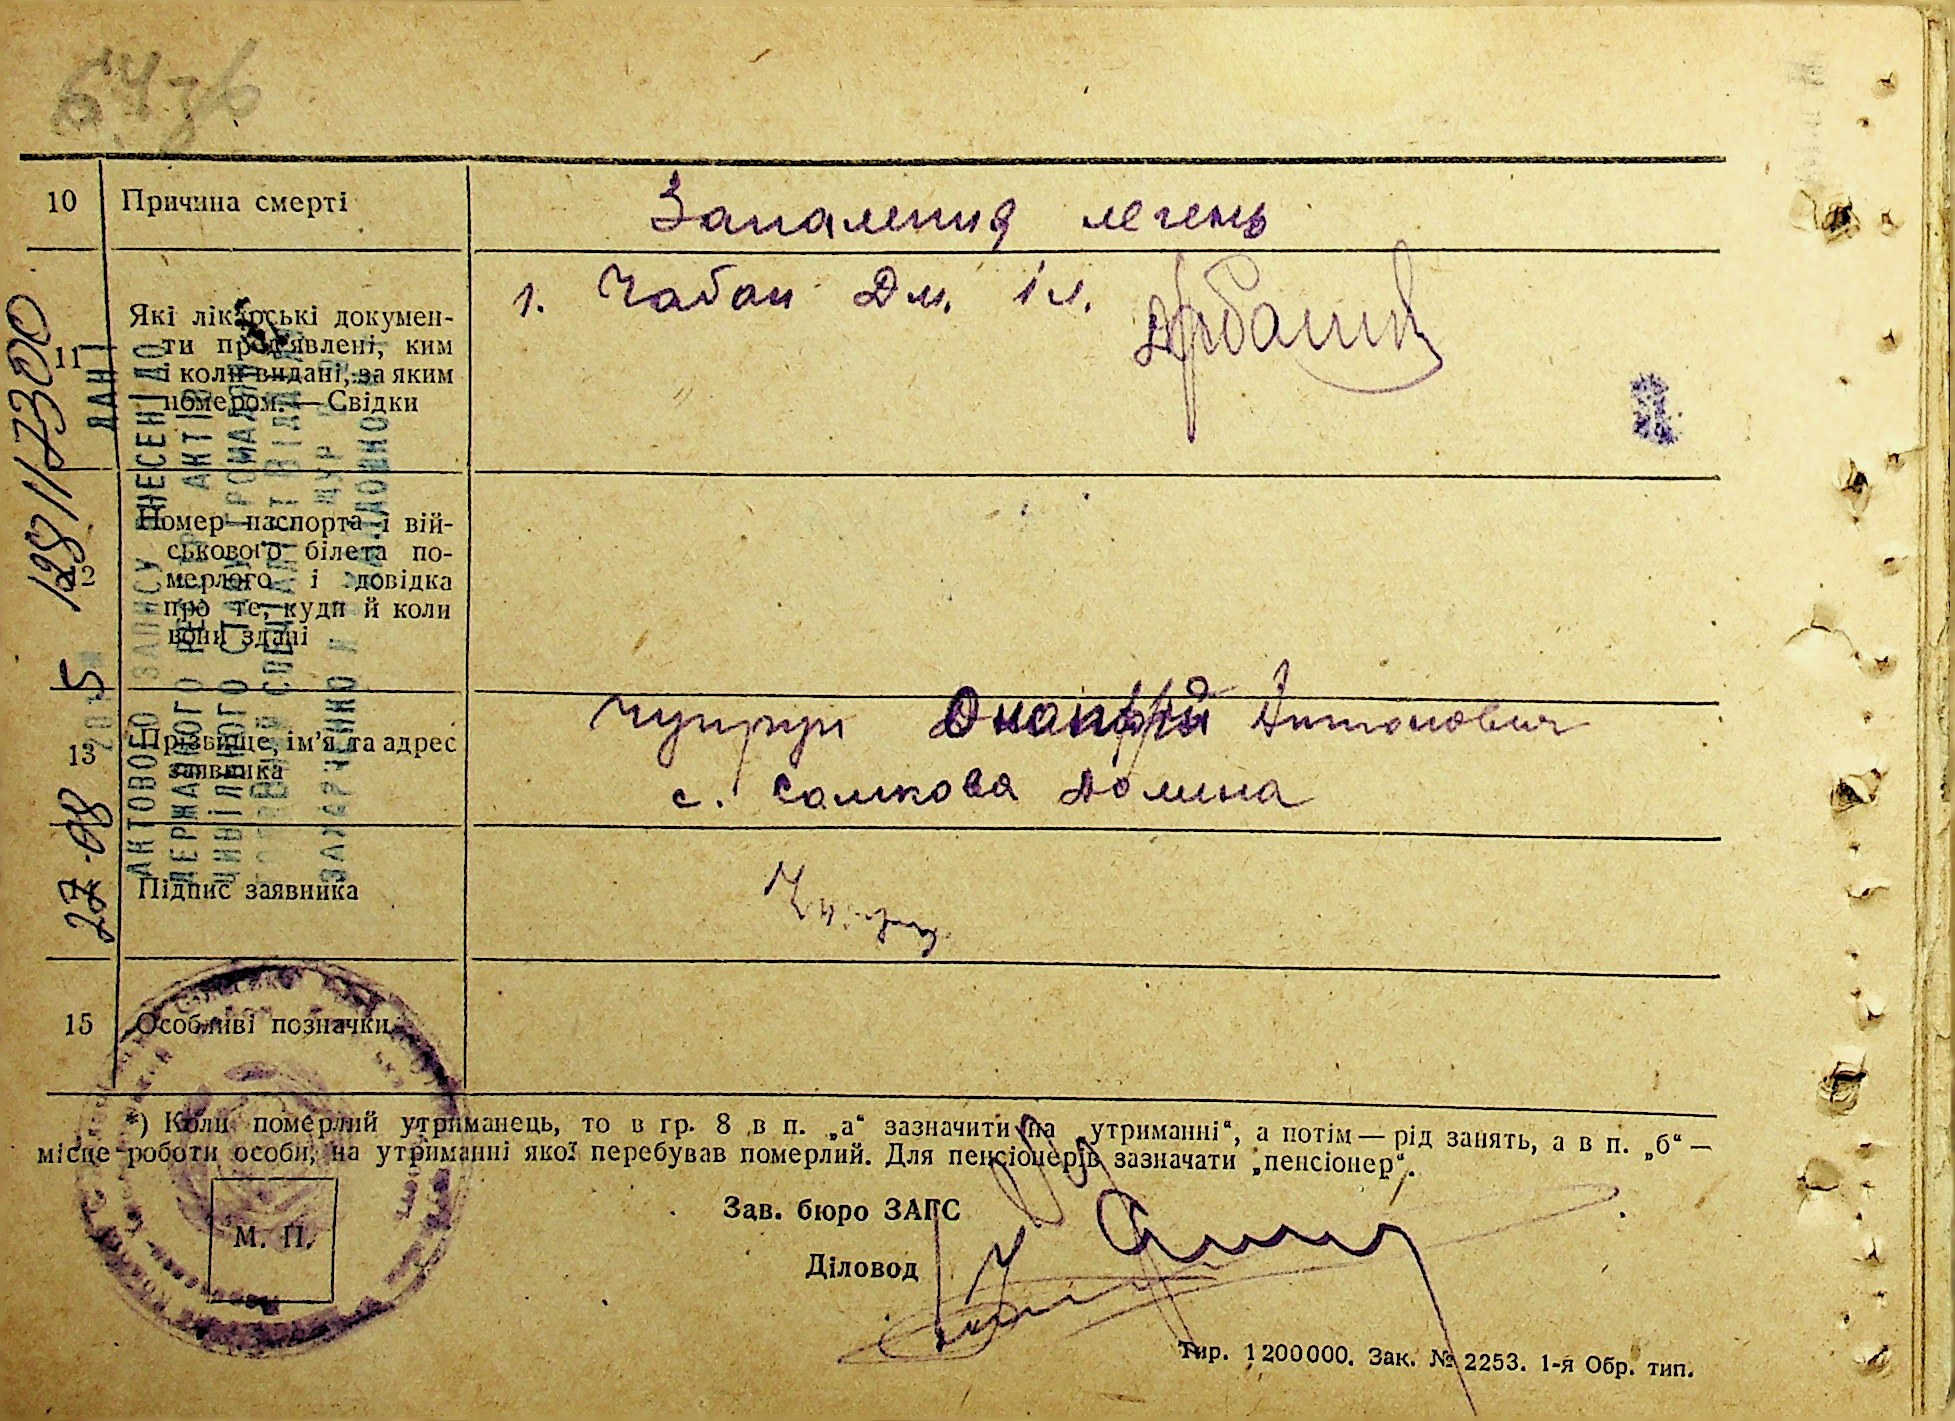 10 Причина смерті Запалення легень
11 Які лікарські докумен-
ти пред'явлені, ким
і коли видані, за яким
номером. — Свідки
1. Чабан Дм. Іл.
12 Номер паспорта і вій-
ськового білета по-
мерлого і довідка
про те, куди й коли
вони здані
13 Прізвище, ім'я та адрес
заявника
Чупрун Онапрій Антонович
с. Салкова Долина
Підпис заявника
15 Особливі позначки
*) Коли померлий утриманець, то в гр. 8 в п. „а“ зазначити „на утриманні“, а потім — рід занять, а в п. „б“ —
місце роботи особи, на утриманні якої перебував померлий. Для пенсіонерів зазначати „пенсіонер“.
М. П.
Зав. бюро ЗАГС
Діловод
Тир. 1200000. Зак. № 2253. 1-я Обр. тип.
АКТОВОГО ЗАПИСУ ВНЕСЕНІ ДО
ДЕРЖАВНОГО РЕЄСТР АКТІВ
ЦИВІЛЬНОГО СТАНУ ГРОМАДЯН
ЗАХАРЧЕНКО